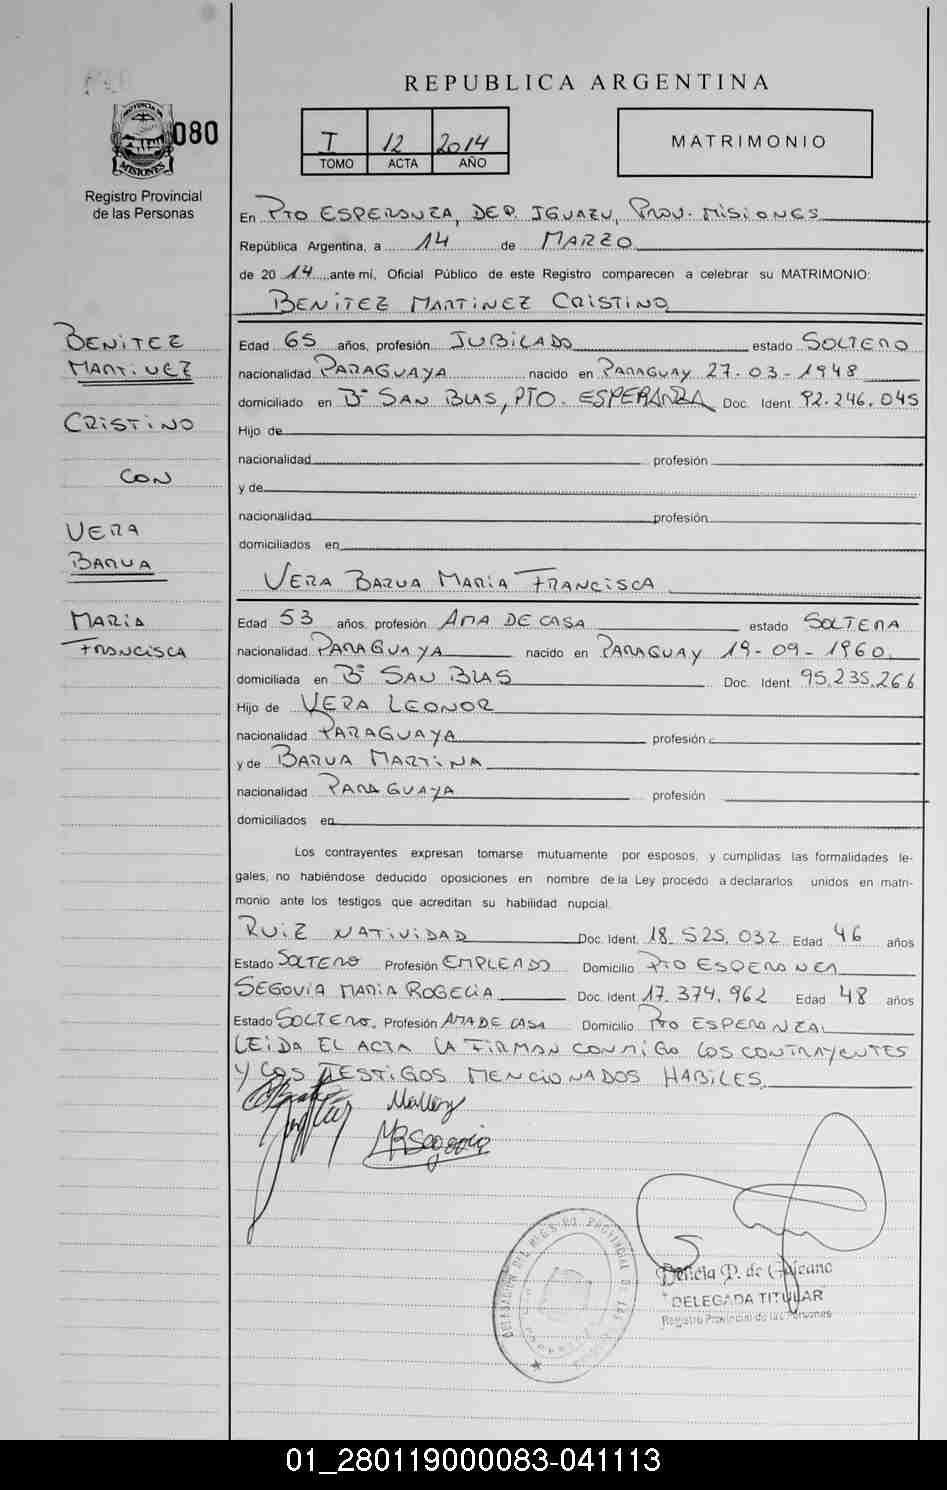 REPUBLICA ARGENTINA
PROVINCIA DE
MISIONES
080
Registro Provincial
de las Personas
I 12 2014
TOMO ACTA AÑO
MATRIMONIO
En PTO ESPERANZA, DEP. IGUAZU, PROV. MISIONES
República Argentina, a 14 de MARZO
de 20 14 ante mí, Oficial Público de este Registro comparecen a celebrar su MATRIMONIO:
BENITEZ MARTINEZ CRISTINO
BENITEZ
MARTINEZ
CRISTINO
CON
VERA
BARUA
MARIA
FRANCISCA
Edad 65 años, profesión JUBILADO estado SOLTERO
nacionalidad PARAGUAYA nacido en PARAGUAY 27-03-1948
domiciliado en Bº SAN BLAS, PTO. ESPERANZA Doc. Ident. 92.246.045
Hijo de
nacionalidad profesión
y de
nacionalidad profesión
domiciliados en
VERA BARUA MARIA FRANCISCA
Edad 53 años, profesión AMA DE CASA estado SOLTERA
nacionalidad PARAGUAYA nacido en PARAGUAY 19-09-1960
domiciliada en Bº SAN BLAS Doc. Ident. 95.235.266
Hijo de VERA LEONOR
nacionalidad PARAGUAYA profesión
y de BARUA MARTINA
nacionalidad PARAGUAYA profesión
domiciliados en
Los contrayentes expresan tomarse mutuamente por esposos, y cumplidas las formalidades le-
gales, no habiéndose deducido oposiciones en nombre de la Ley procedo a declararlos unidos en matri-
monio ante los testigos que acreditan su habilidad nupcial.
RUIZ NATIVIDAD Doc. Ident. 18.525.032 Edad 46 años
Estado SOLTERO Profesión EMPLEADO Domicilio PTO ESPERANZA
SEGOVIA MARIA ROGELIA Doc. Ident. 17.374.962 Edad 48 años
Estado SOLTERO, Profesión AMA DE CASA Domicilio PTO ESPERANZA
LEIDA EL ACTA LA FIRMAN CONMIGO LOS CONTRAYENTES
Y LOS TESTIGOS MENCIONADOS HABILES
MRSegovia
DELEGACION DEL REGISTRO PROVINCIAL DE LAS
DELEGADA TITULAR
Registro Provincial de las Personas
01_280119000083-041113